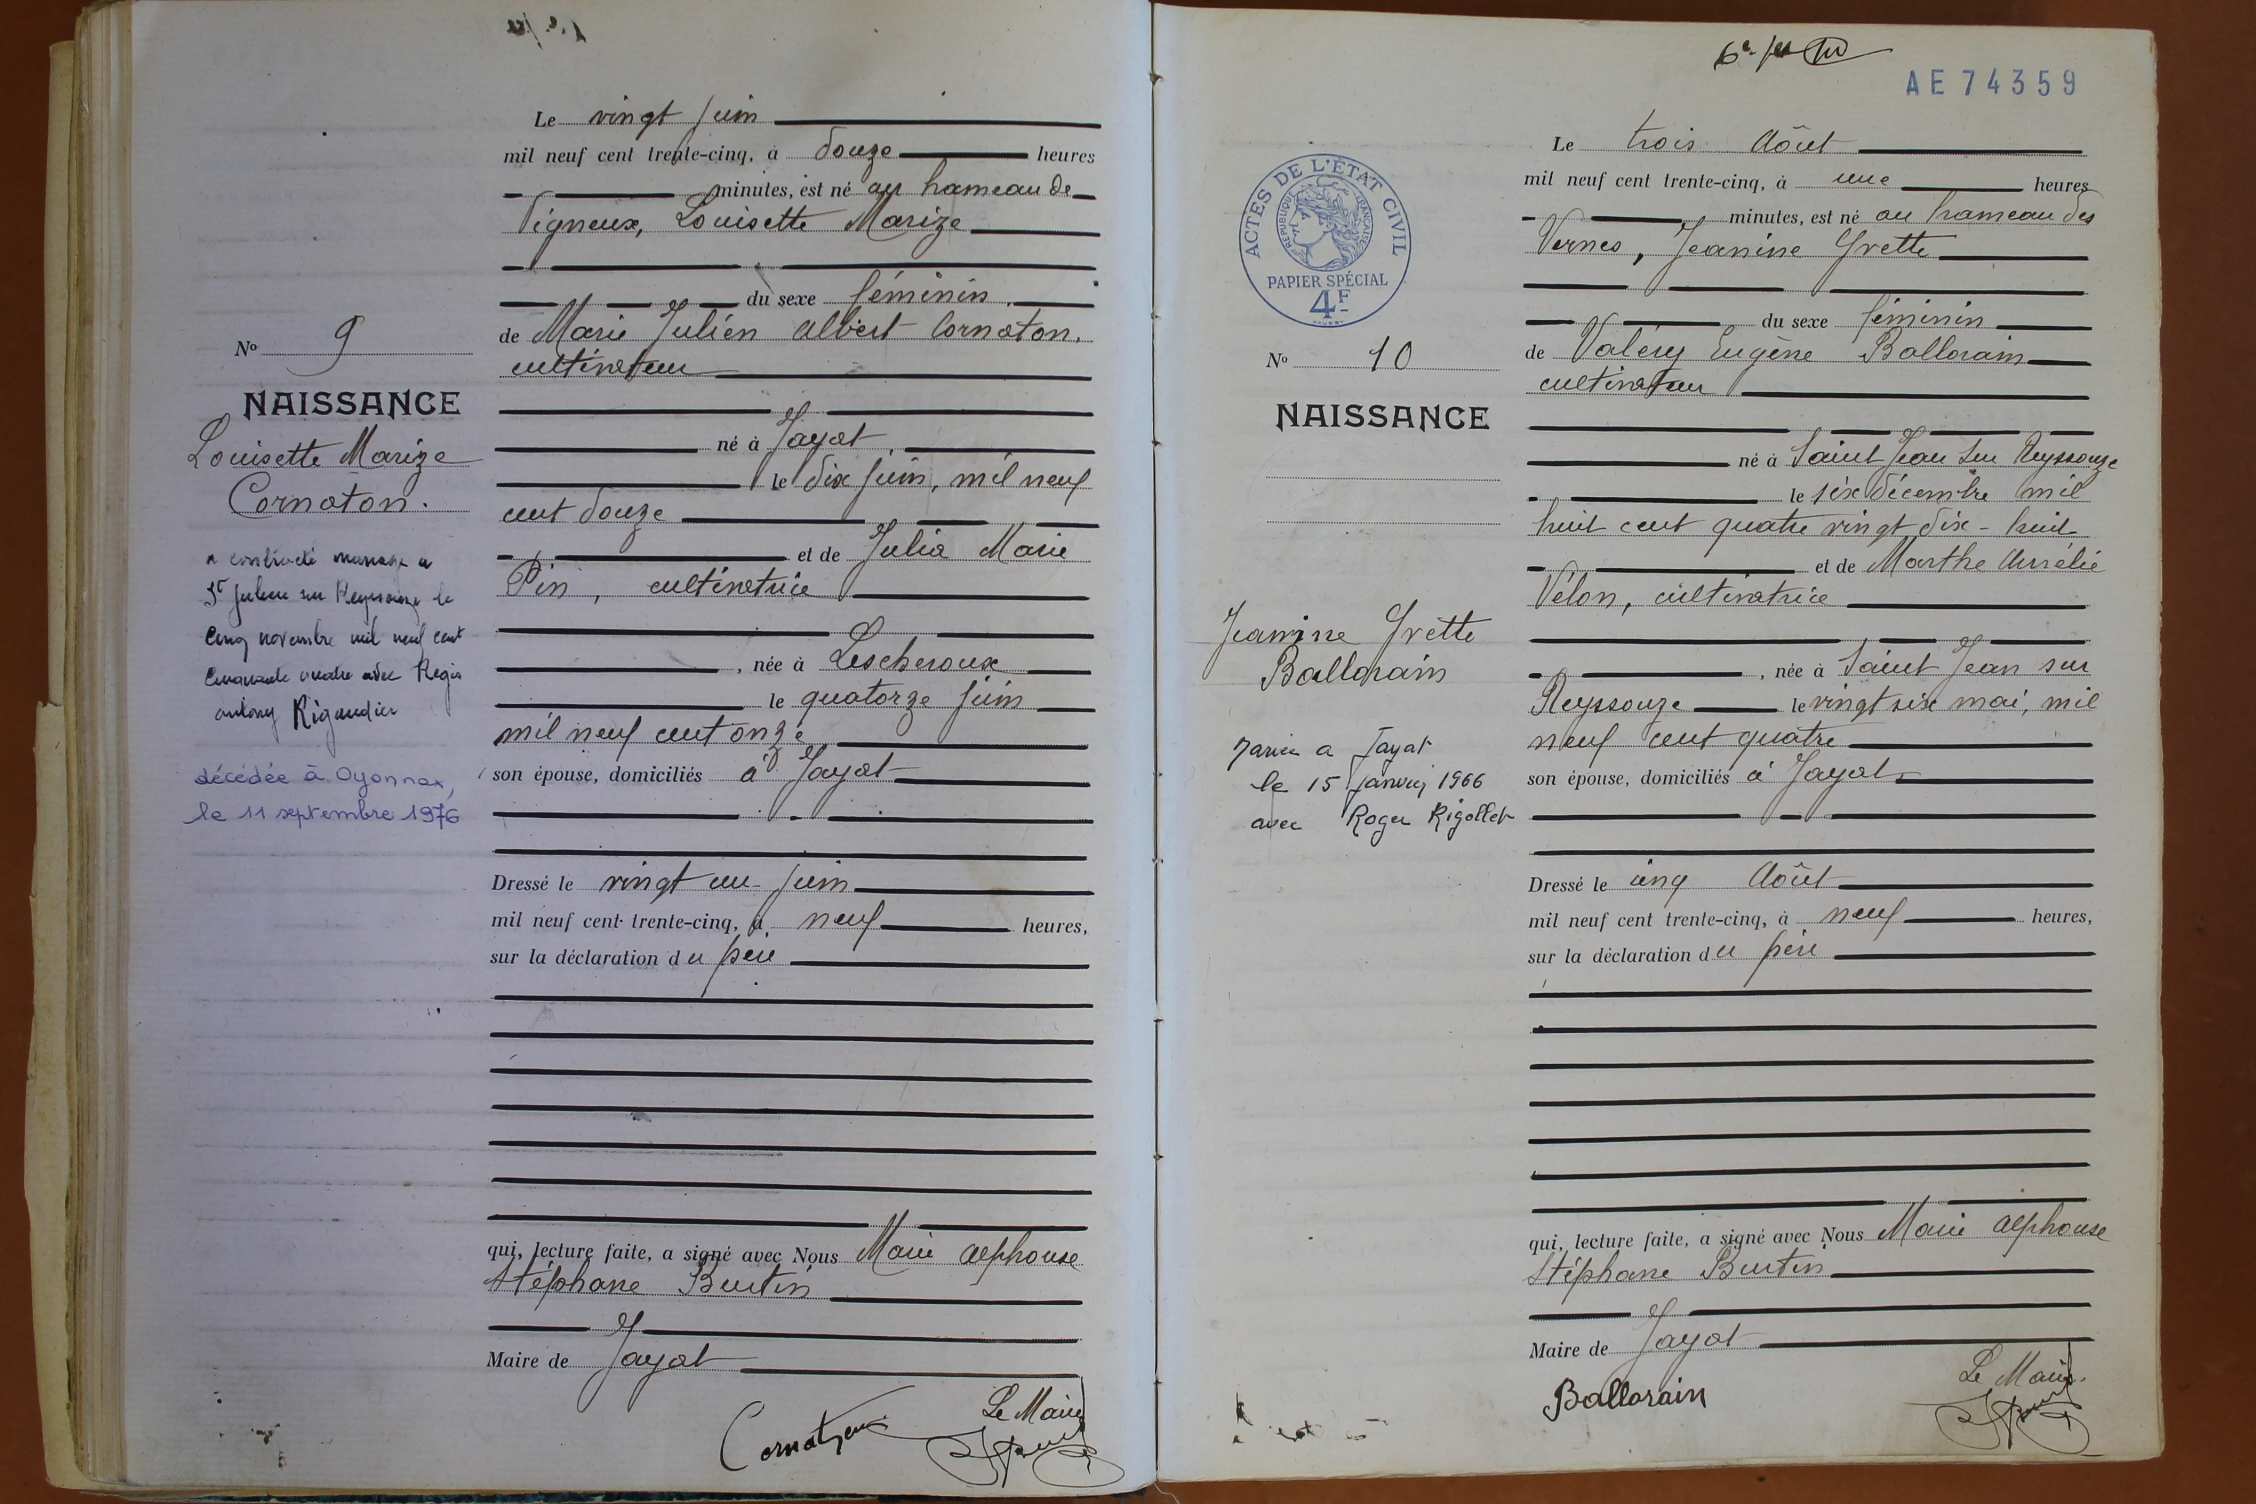 Le vingt juin
mil neuf cent trente-cinq, à douze heures
minutes, est né au hameau de
Vigneux, Louisette Marize
du sexe féminin
de Marie Julien Albert Cornaton,
cultivateur
né à Jayat
le dix juin, mil neuf
cent douze
et de Julia Marie
Pin, cultivatrice
, née à Lescheroux
le quatorze juin
mil neuf cent onze
son épouse, domiciliés à Jayat
Dressé le vingt un juin
mil neuf cent trente-cinq, à neuf heures,
sur la déclaration du père
qui, lecture faite, a signé avec Nous Marie Alphonse
Stéphane Burtin
Maire de Jayat
Le Maire
No 9
NAISSANCE
Louisette Marize
Cornaton.
a contracté mariage à
St Julien sur Reyssouze le
cinq novembre mil neuf cent
cinquante quatre avec Régis
antony Rigaudier
décédée à Oyonnax,
le 11 septembre 1976
6e
AE 74359
Le trois Août
mil neuf cent trente-cinq, à une heures
minutes, est né au hameau des
Vernes, Jeanine Yvette
du sexe féminin
de Valéry Eugène Ballorain
cultivateur
né à Saint Jean sur Reyssouze
le six décembre mil
huit cent quatre vingt dix-huit
et de Marthe Aurélie
Vélon, cultivatrice
, née à Saint Jean sur
Reyssouze le vingt six mai, mil
neuf cent quatre
son épouse, domiciliés à Jayat
Dressé le cinq Août
mil neuf cent trente-cinq, à neuf heures,
sur la déclaration du père
qui, lecture faite, a signé avec Nous Marie Alphonse
Stéphane Burtin
Maire de Jayat
Ballorain
Le Maire.
ACTES DE L'ÉTAT CIVIL
RÉPUBLIQUE FRANÇAISE
PAPIER SPÉCIAL
4F
No 10
NAISSANCE
Jeanine Yvette
Ballorain
Mariée a Jayat
le 15 Janvier 1966
avec Roger Rigollet